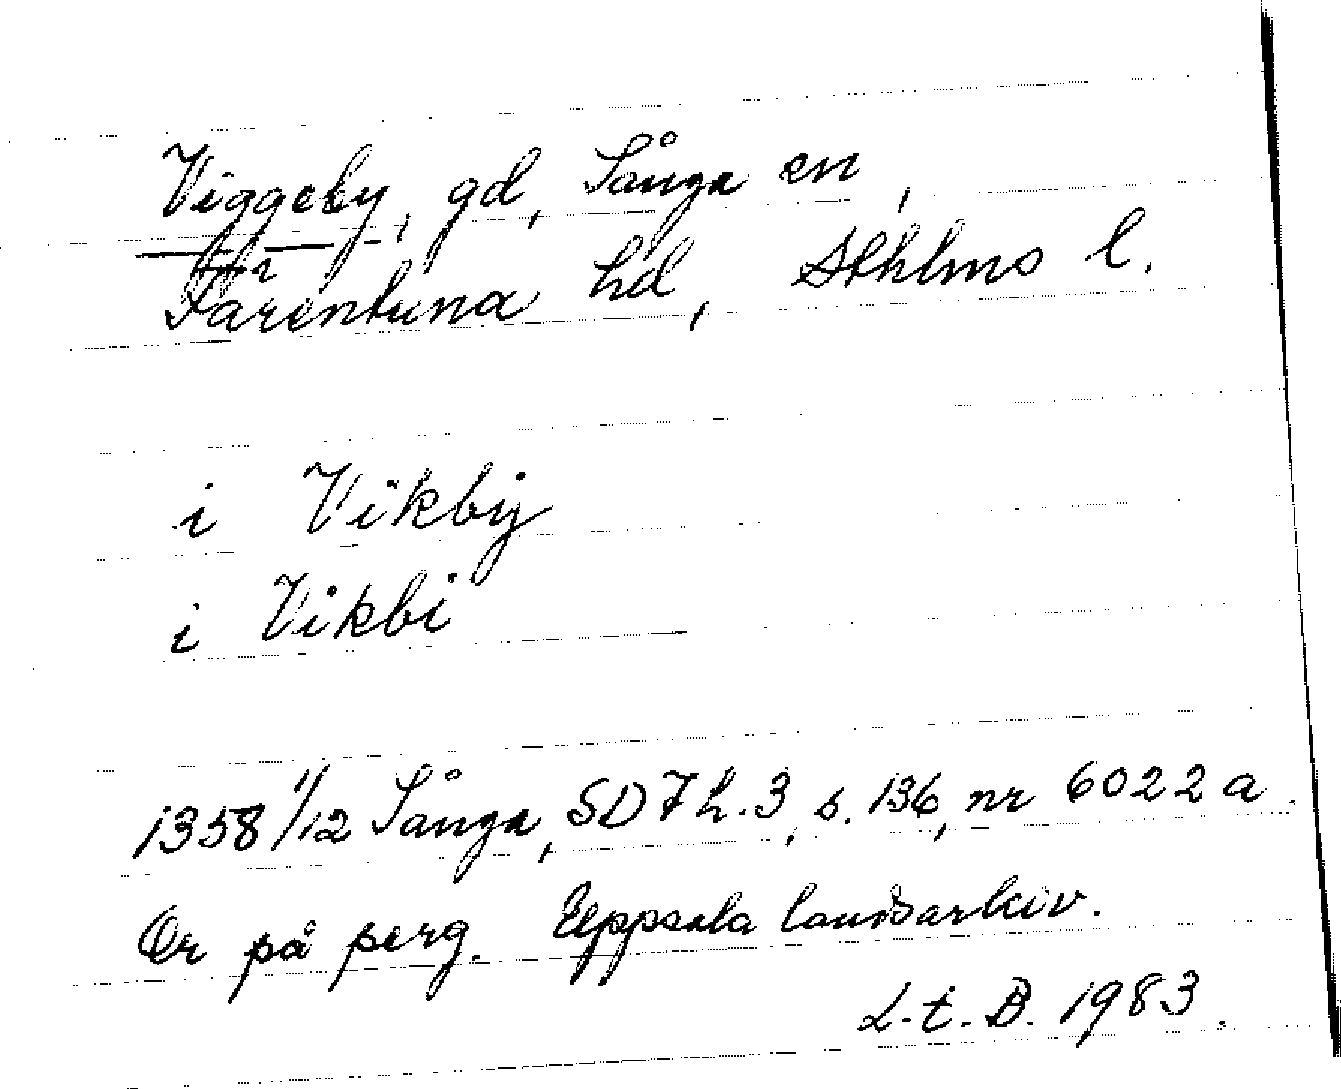 Viggeby, gd, Sånga sn,
Färentuna hd, Sthlms l.
i Vikby
i Vikbi
1358 1/12 Sånga, SD 7 h. 3, s. 136, nr 6022 a.
Or på perg. Uppsala landsarkiv.
L.t. B. 1983.